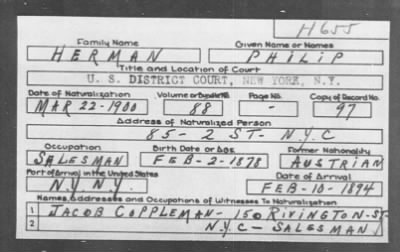 H655
Family Name Given Name or Names
HERMAN PHILIP
Title and Location of Court
U. S. DISTRICT COURT, NEW YORK, N.Y.
Date of Naturalization Volume or Bundle No. Page No. Copy of Record No.
MAR 22-1900 88 - 97
Address of Naturalized Person
85- 2 ST- N.Y.C
Occupation Birth Date or Age Former Nationality
SALESMAN FEB-2-1878 AUSTRIAN
Port of Arrival in the United States Date of Arrival
N.Y. N.Y. FEB-10-1894
Names, Addresses and Occupations of Witnesses To Naturalization
1 JACOB COPPLEMAN- 150 RIVINGTON-ST-
2 N.Y.C- SALESMAN